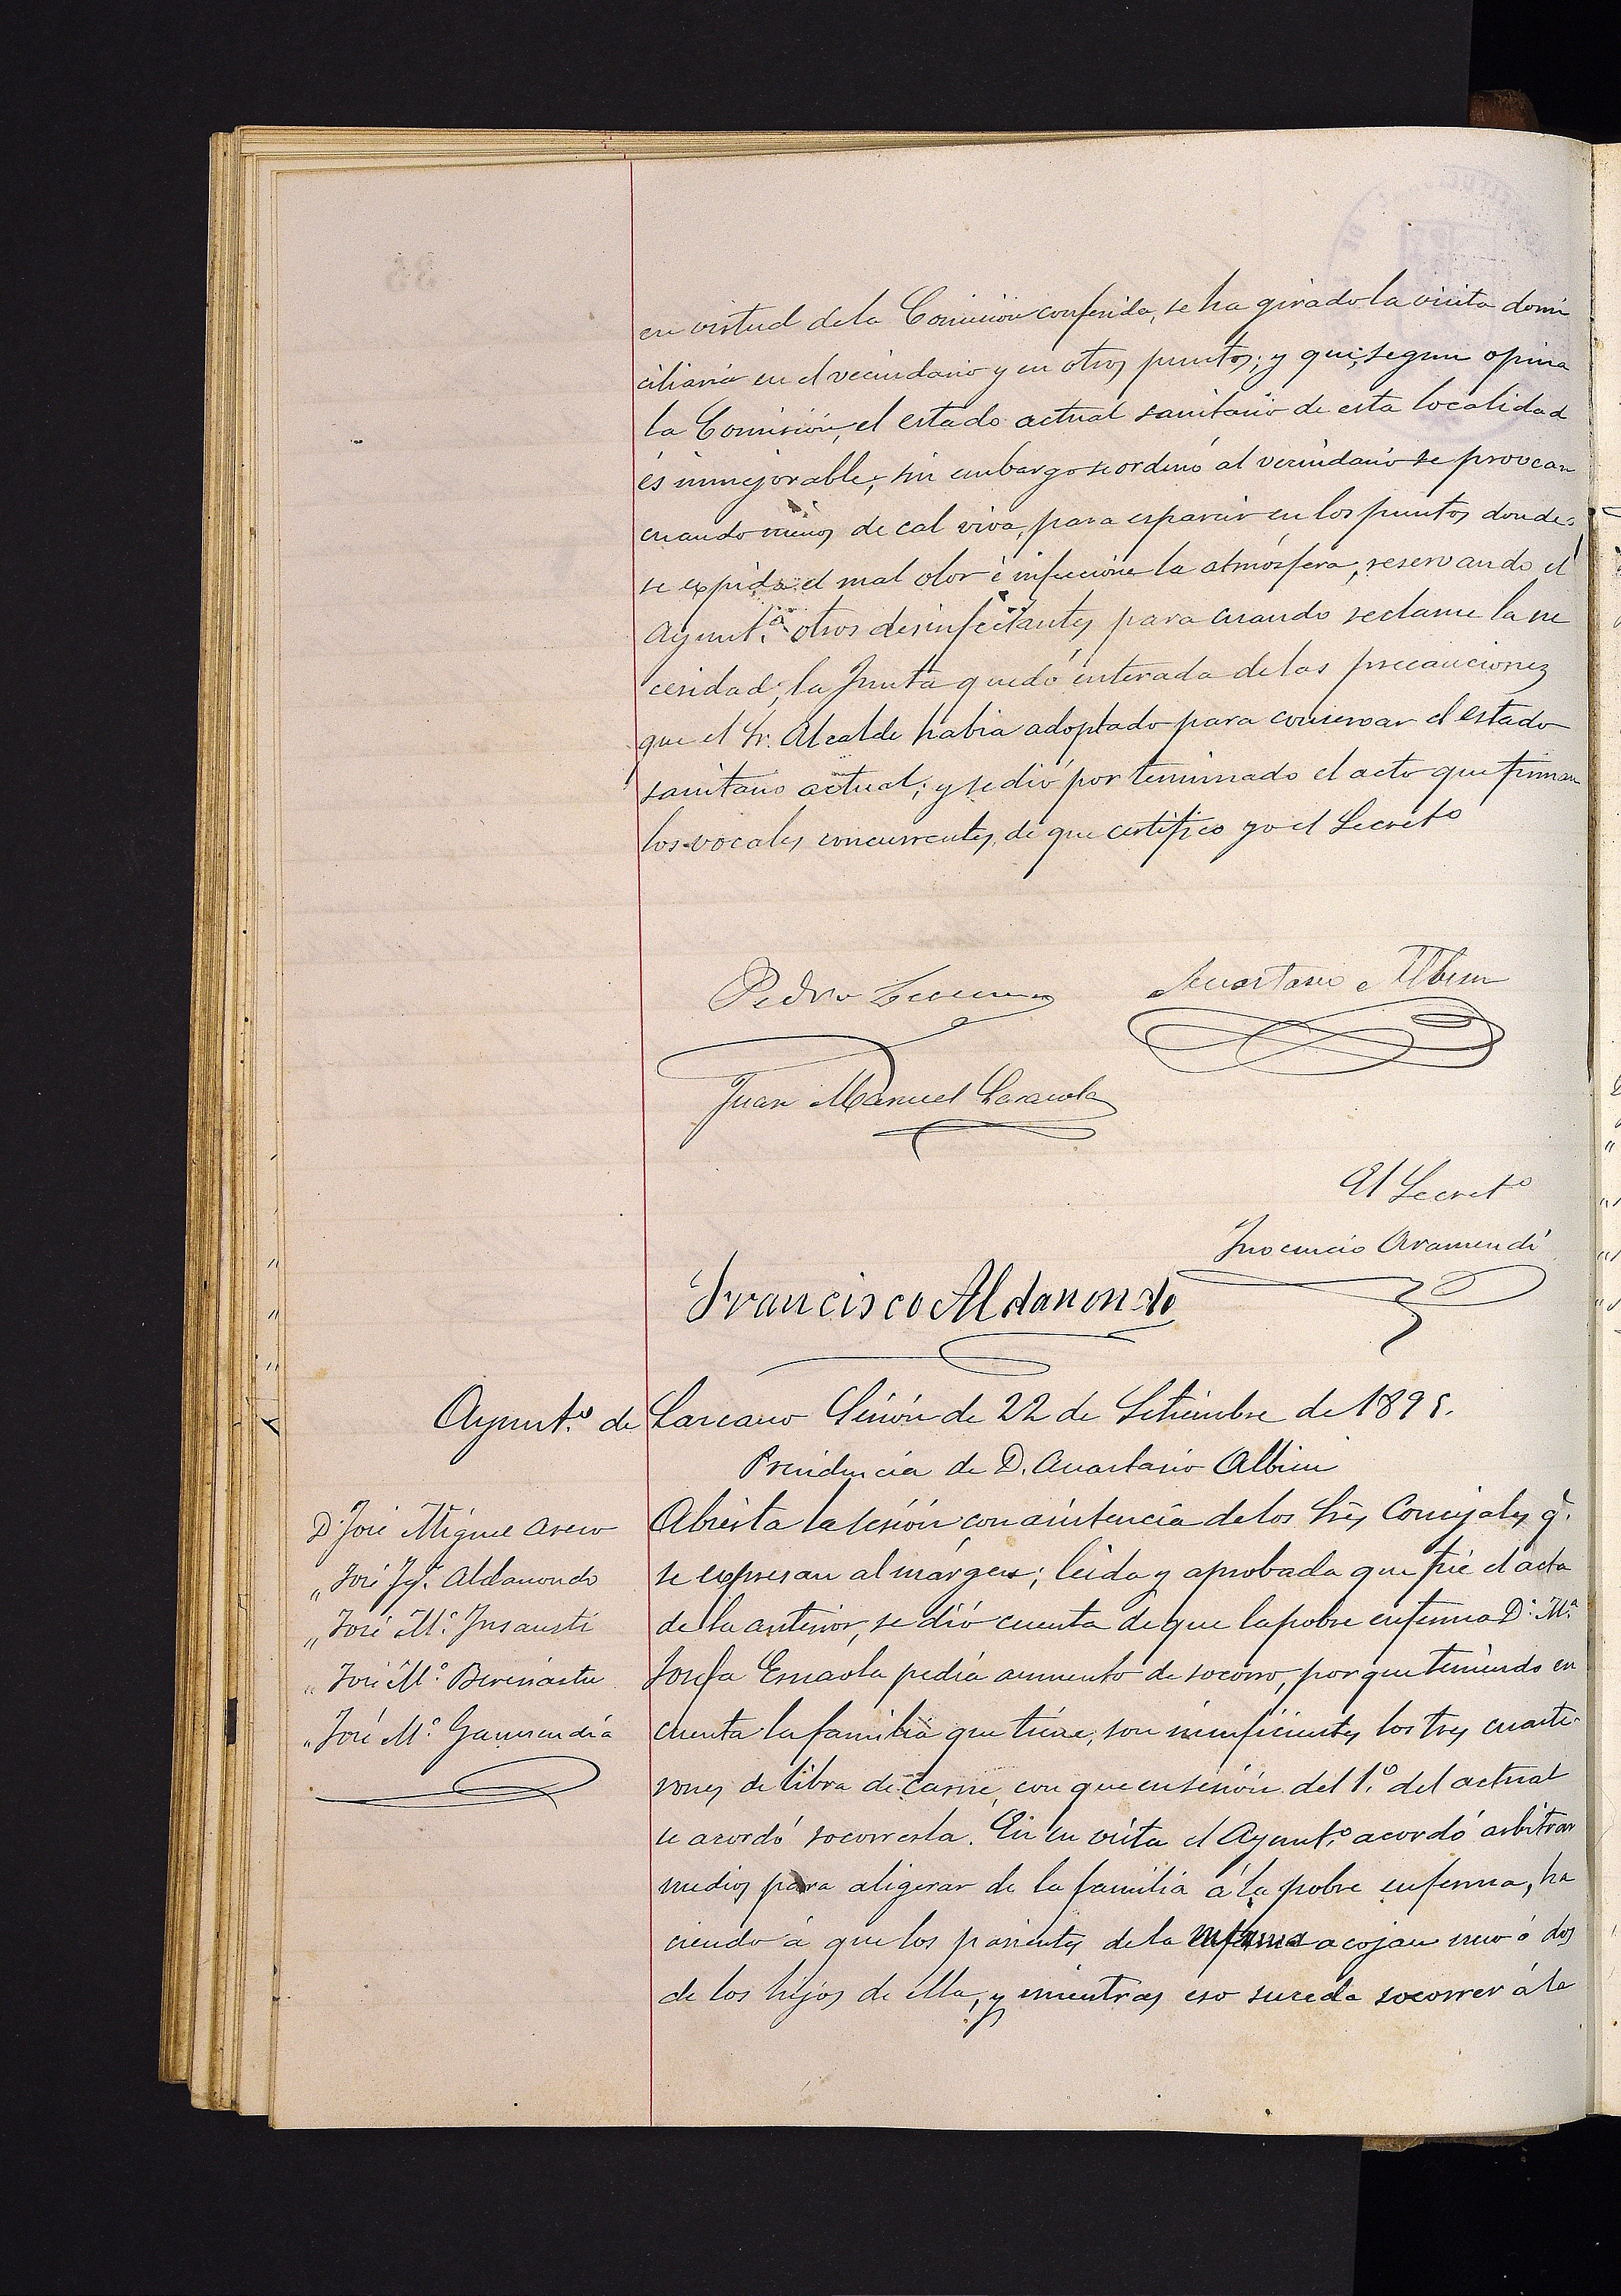 en virtud de la Comision conferida, se ha girado la visita domi
ciliaria en el vecindario y en otros puntos; y que, segun opina
la Comisión, el estado actual sanitario de esta localidad
és inmejorable; sin embargo se ordenó al vecindario se provean
cuando menos de cal viva, para esparcir en los puntos donde
se expida el mal olor é infeccione la atmósfera, reservando el
Ayunt.º otros desinfectantes para cuando reclame la ne
cesidad; la Junta quedó enterada de las precauciones
que el Sr. Alcalde habia adoptado para conservar el estado
sanitario actual; y se dió por terminado el acto que firman
los vocales concurrentes, de que certifico yo el Secretº
Pedro
Anastasio Albisu
Juan Manuel
El Secretº
Inocencio Aramendi
Francisco Aldanondo
Ayunt.º de Lazcano Sesión de 22 de Setiembre de 1895.
Presidencia de D. Anastasio Albisu
D. José Miguel
" José Igº. Aldanondo
" José Mº. Insausti
" José Mº. Beresiartu
" José Mº. Garmendia
Abierta la sesión con asistencia de los Sres Concejales q.
se expresan al márgen; leida y aprobada que fué el acta
de la anterior, se dió cuenta de que la pobre enferma Dª. Mª.
Josefa Esnaola pedia aumento de socorro, por que teniendo en
cuenta la familia que tiene, son insuficientes los tres cuarte-
rones de libra de carne, con que en sesión del 1.º del actual
se acordó socorrerla. En su vista el Ayunt.º acordó arbitrar
medios para aligerar de la familia á la pobre enferma, ha
ciendo á que los parientes de la enferma acojan uno ó dos
de los hijos de ella, y mientras eso suceda socorrer á la